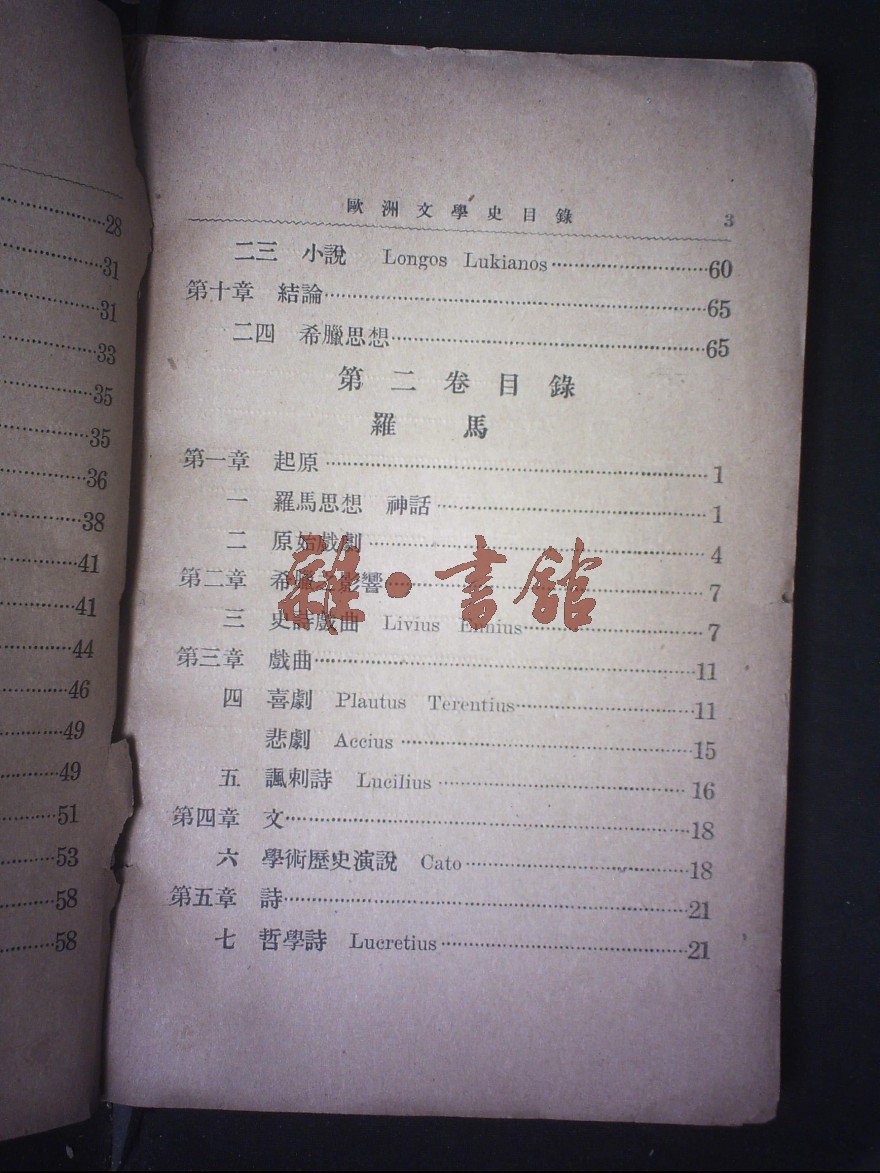 28
31
31
33
35
35
36
38
41
41
44
46
49
49
51
53
58
58
歐洲文學史目錄 3
二三 小說 Longos Lukianos 60
第十章 結論 65
二四 希臘思想 65
第二卷目錄
羅馬
第一章 起原 1
一 羅馬思想 神話 1
二 原始戲劇 4
第二章 希臘之影響 7
三 史詩戲曲 Livius Ennius 7
第三章 戲曲 11
四 喜劇 Plautus Terentius 11
悲劇 Accius 15
五 諷刺詩 Lucilius 16
第四章 文 18
六 學術歷史演說 Cato 18
第五章 詩 21
七 哲學詩 Lucretius 21
雜·書館